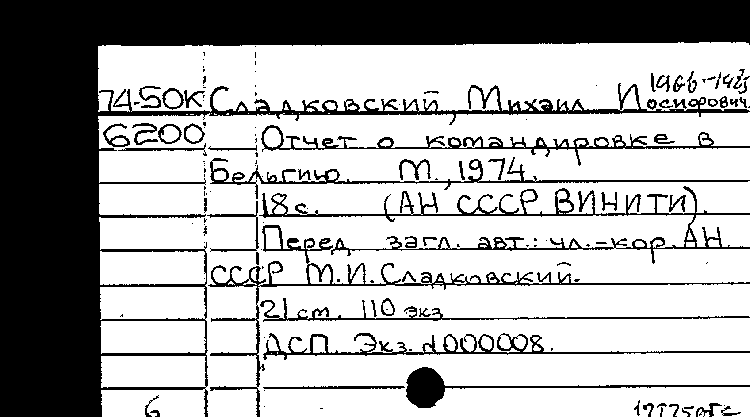 74-50К Сладковский, Михаил Иосифович
6200 Отчет о командировке в
Бельгию. М., 1974.
18 с. (АН СССР. ВИНИТИ).
Перед загл. авт.: чл.-кор. АН
СССР М.И. Сладковский.
21 см. 110 экз
ДСП. Экз. d000008.
6